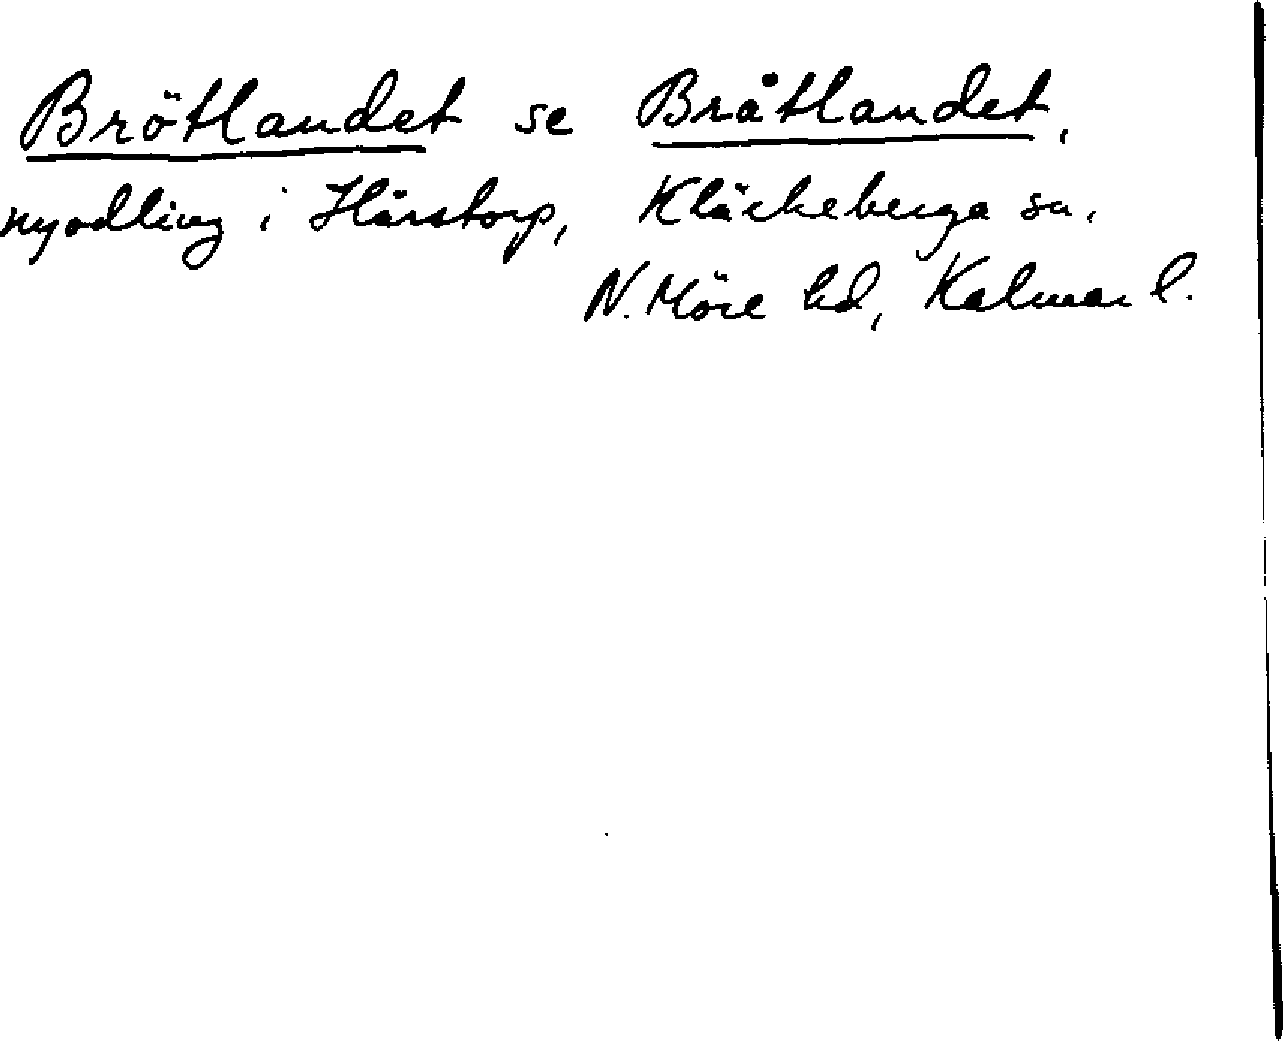 Brötlandet se Bråtlandet,
nyodling i Hårstorp, Kläckeberga sn,
N. Möre hd, Kalmar l.